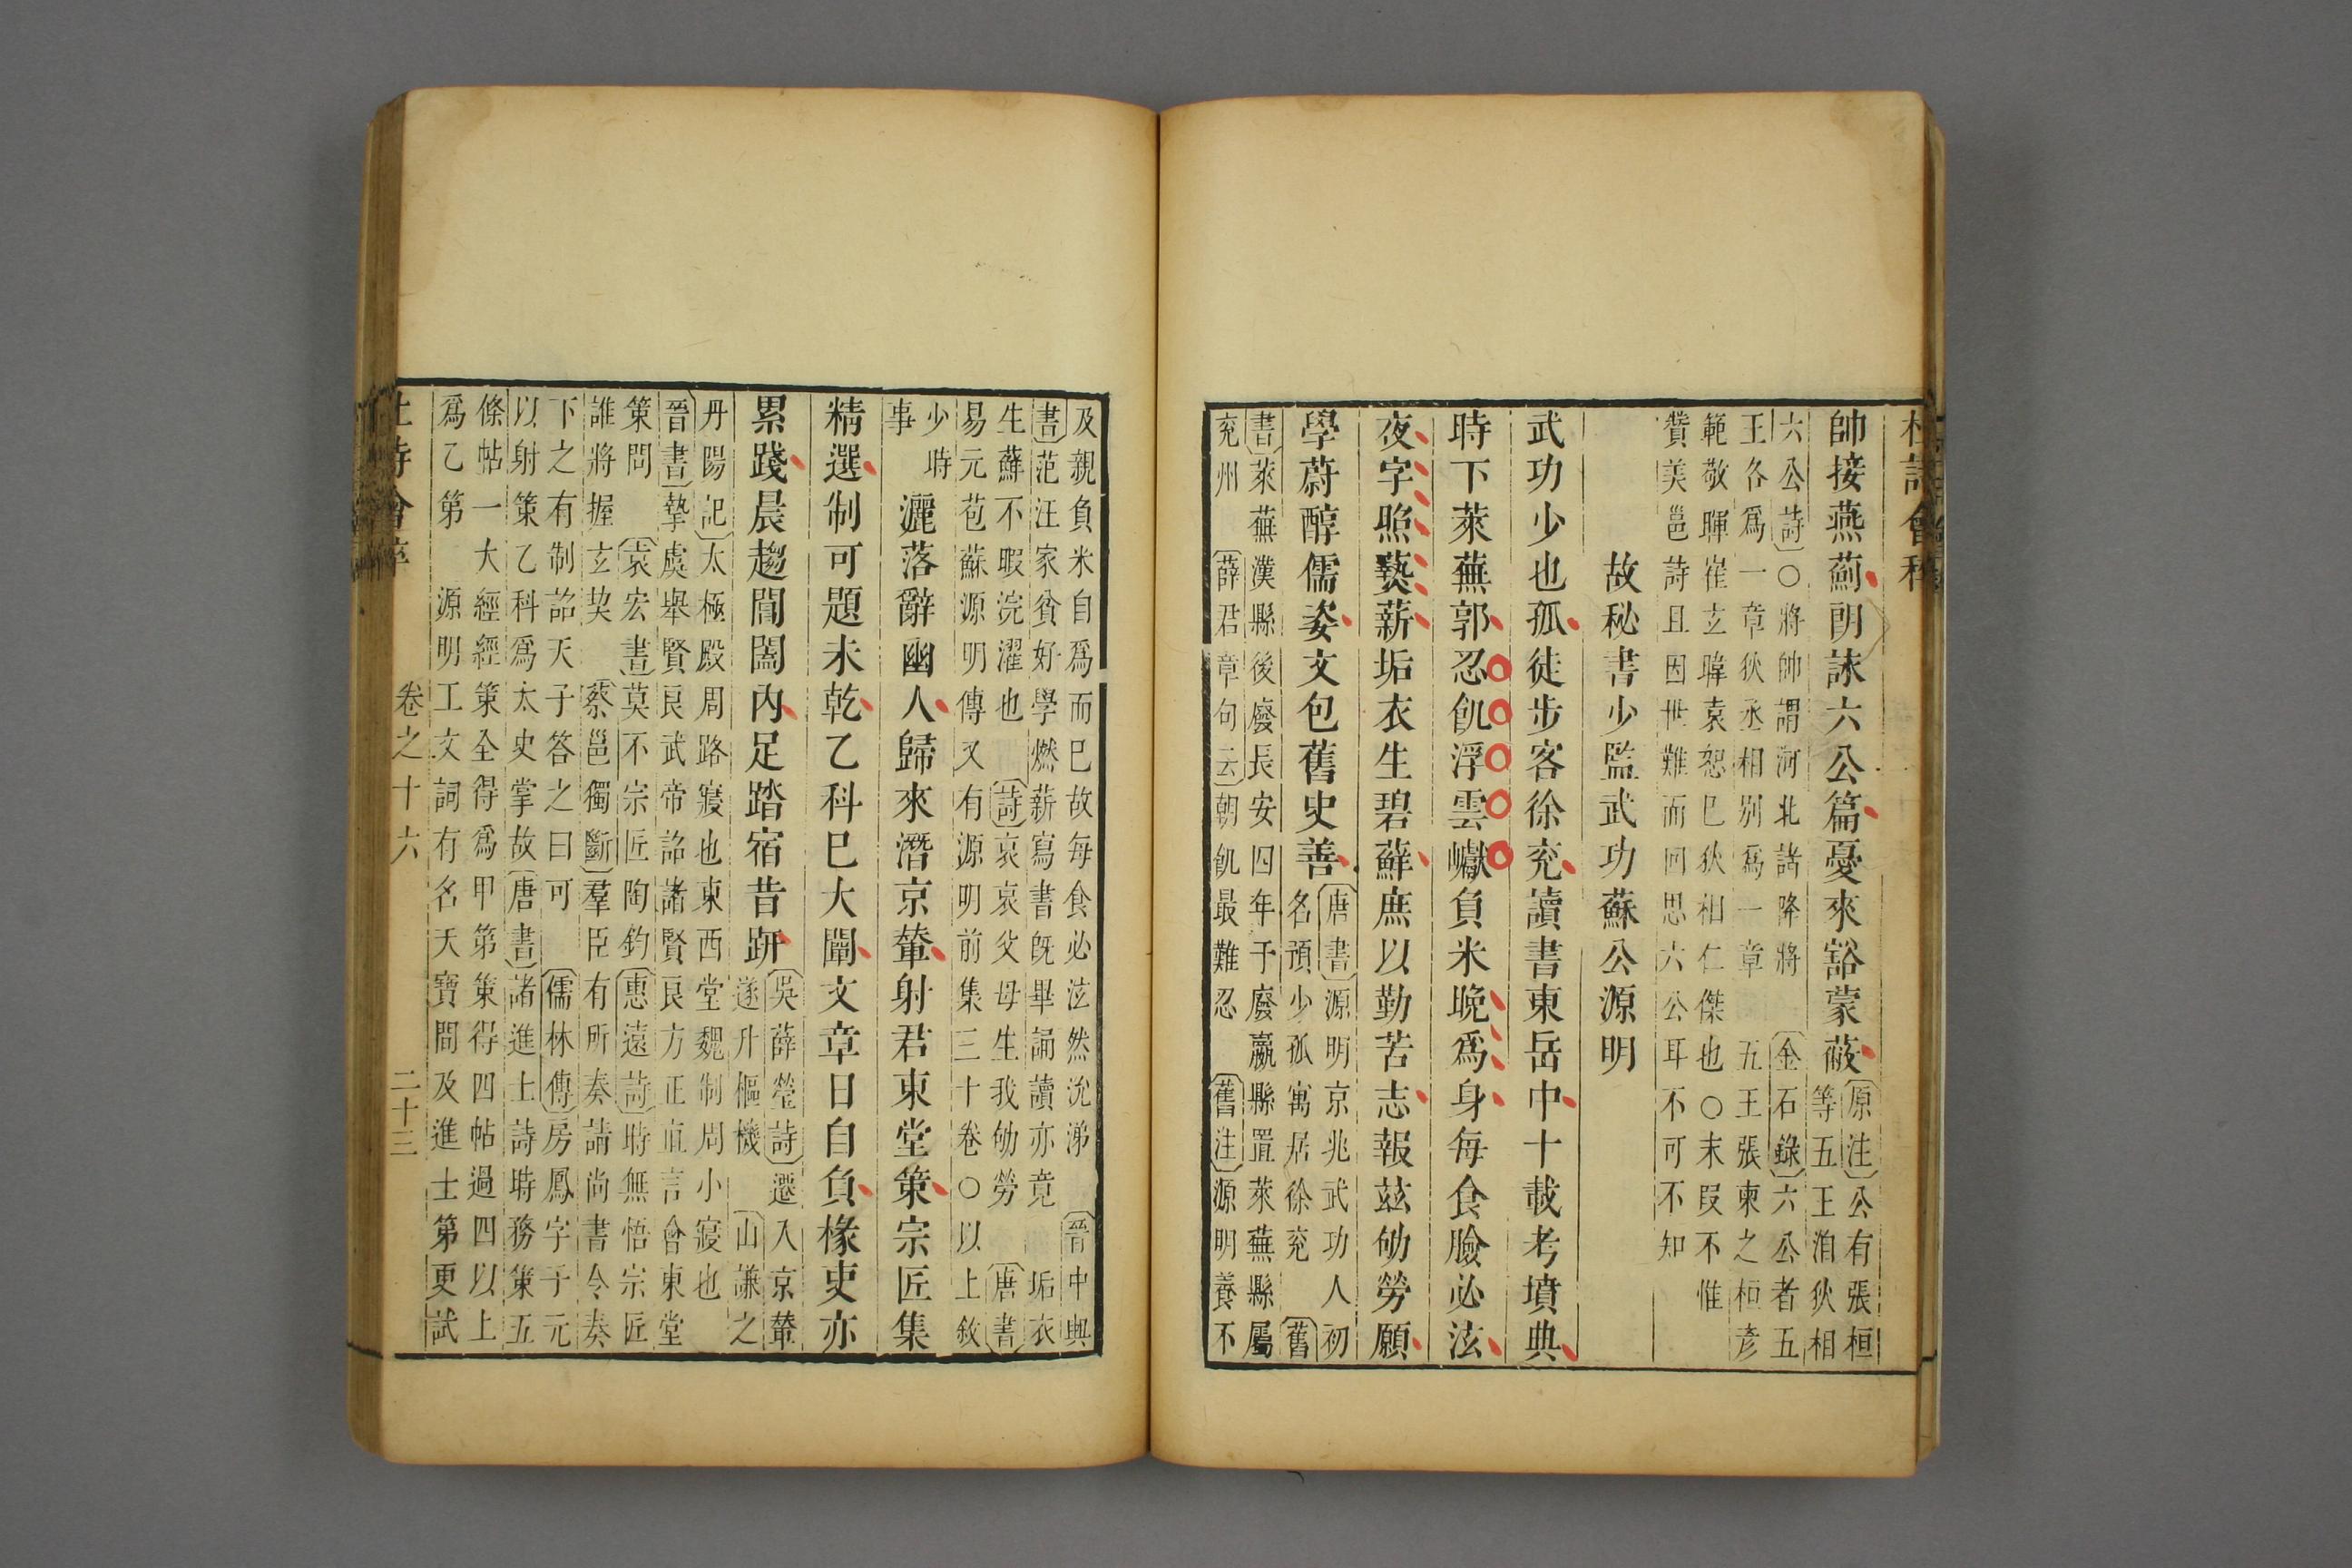 帥接燕薊朗詠六公篇憂來豁蒙蔽
原注公有張桓
等五王洎狄相
六公詩○將帥謂河北諸降將 金石錄六公者五
王各爲一章狄丞相別爲一章 五王張柬之桓彥
範敬暉崔玄暐袁恕已狄相仁傑也○末段不惟
贊美邕詩且因世難而回思六公耳不可不知
故秘書少監武功蘇公源明
武功少也孤徒步客徐兖讀書東岳中十載考墳典
時下萊蕪郭忍飢浮雲巘負米晚爲身每食臉必泫
夜字照爇薪垢衣生碧蘚庶以勤苦志報茲劬勞願
學蔚醇儒姿文包舊史善
唐書源明京兆武功人初
名預少孤寓居徐兖 舊
書萊蕪漢縣後廢長安四年于廢嬴縣置萊蕪縣屬
兖州 薛君章句云朝飢最難忍 舊注源明養不
及親負米自爲而已故每食必泫然沇涕 晉中興
書范汪家貧好學燃薪寫書旣畢誦讀亦竟 垢衣
生蘚不暇浣濯也 詩哀哀父母生我劬勞 唐書
易元苞蘇源明傳又有源明前集三十卷○以上敘
少時
事
灑落辭幽人歸來潛京輦射君東堂策宗匠集
精選制可題未乾乙科已大闡文章日自負掾吏亦
累踐晨趨閶闔內足踏宿昔趼
吳薛瑩詩遷入京輦
遂升樞機 山謙之
丹陽記太極殿周路寢也東西堂魏制周小寢也
晉書摯虞舉賢良武帝詔諸賢良方正直言會東堂
策問 袁宏書莫不宗匠陶鈞 惠遠詩時無悟宗匠
誰將握玄契 蔡邕獨斷羣臣有所奏請尚書令奏
下之有制詔天子答之曰可 儒林傳房鳳字子元
以射策乙科爲太史掌故 唐書諸進士詩時務策五
條帖一大經經策全得爲甲第策得四帖過四以上
爲乙第 源明工文詞有名天寶間及進士第更試
卷之十六 二十三